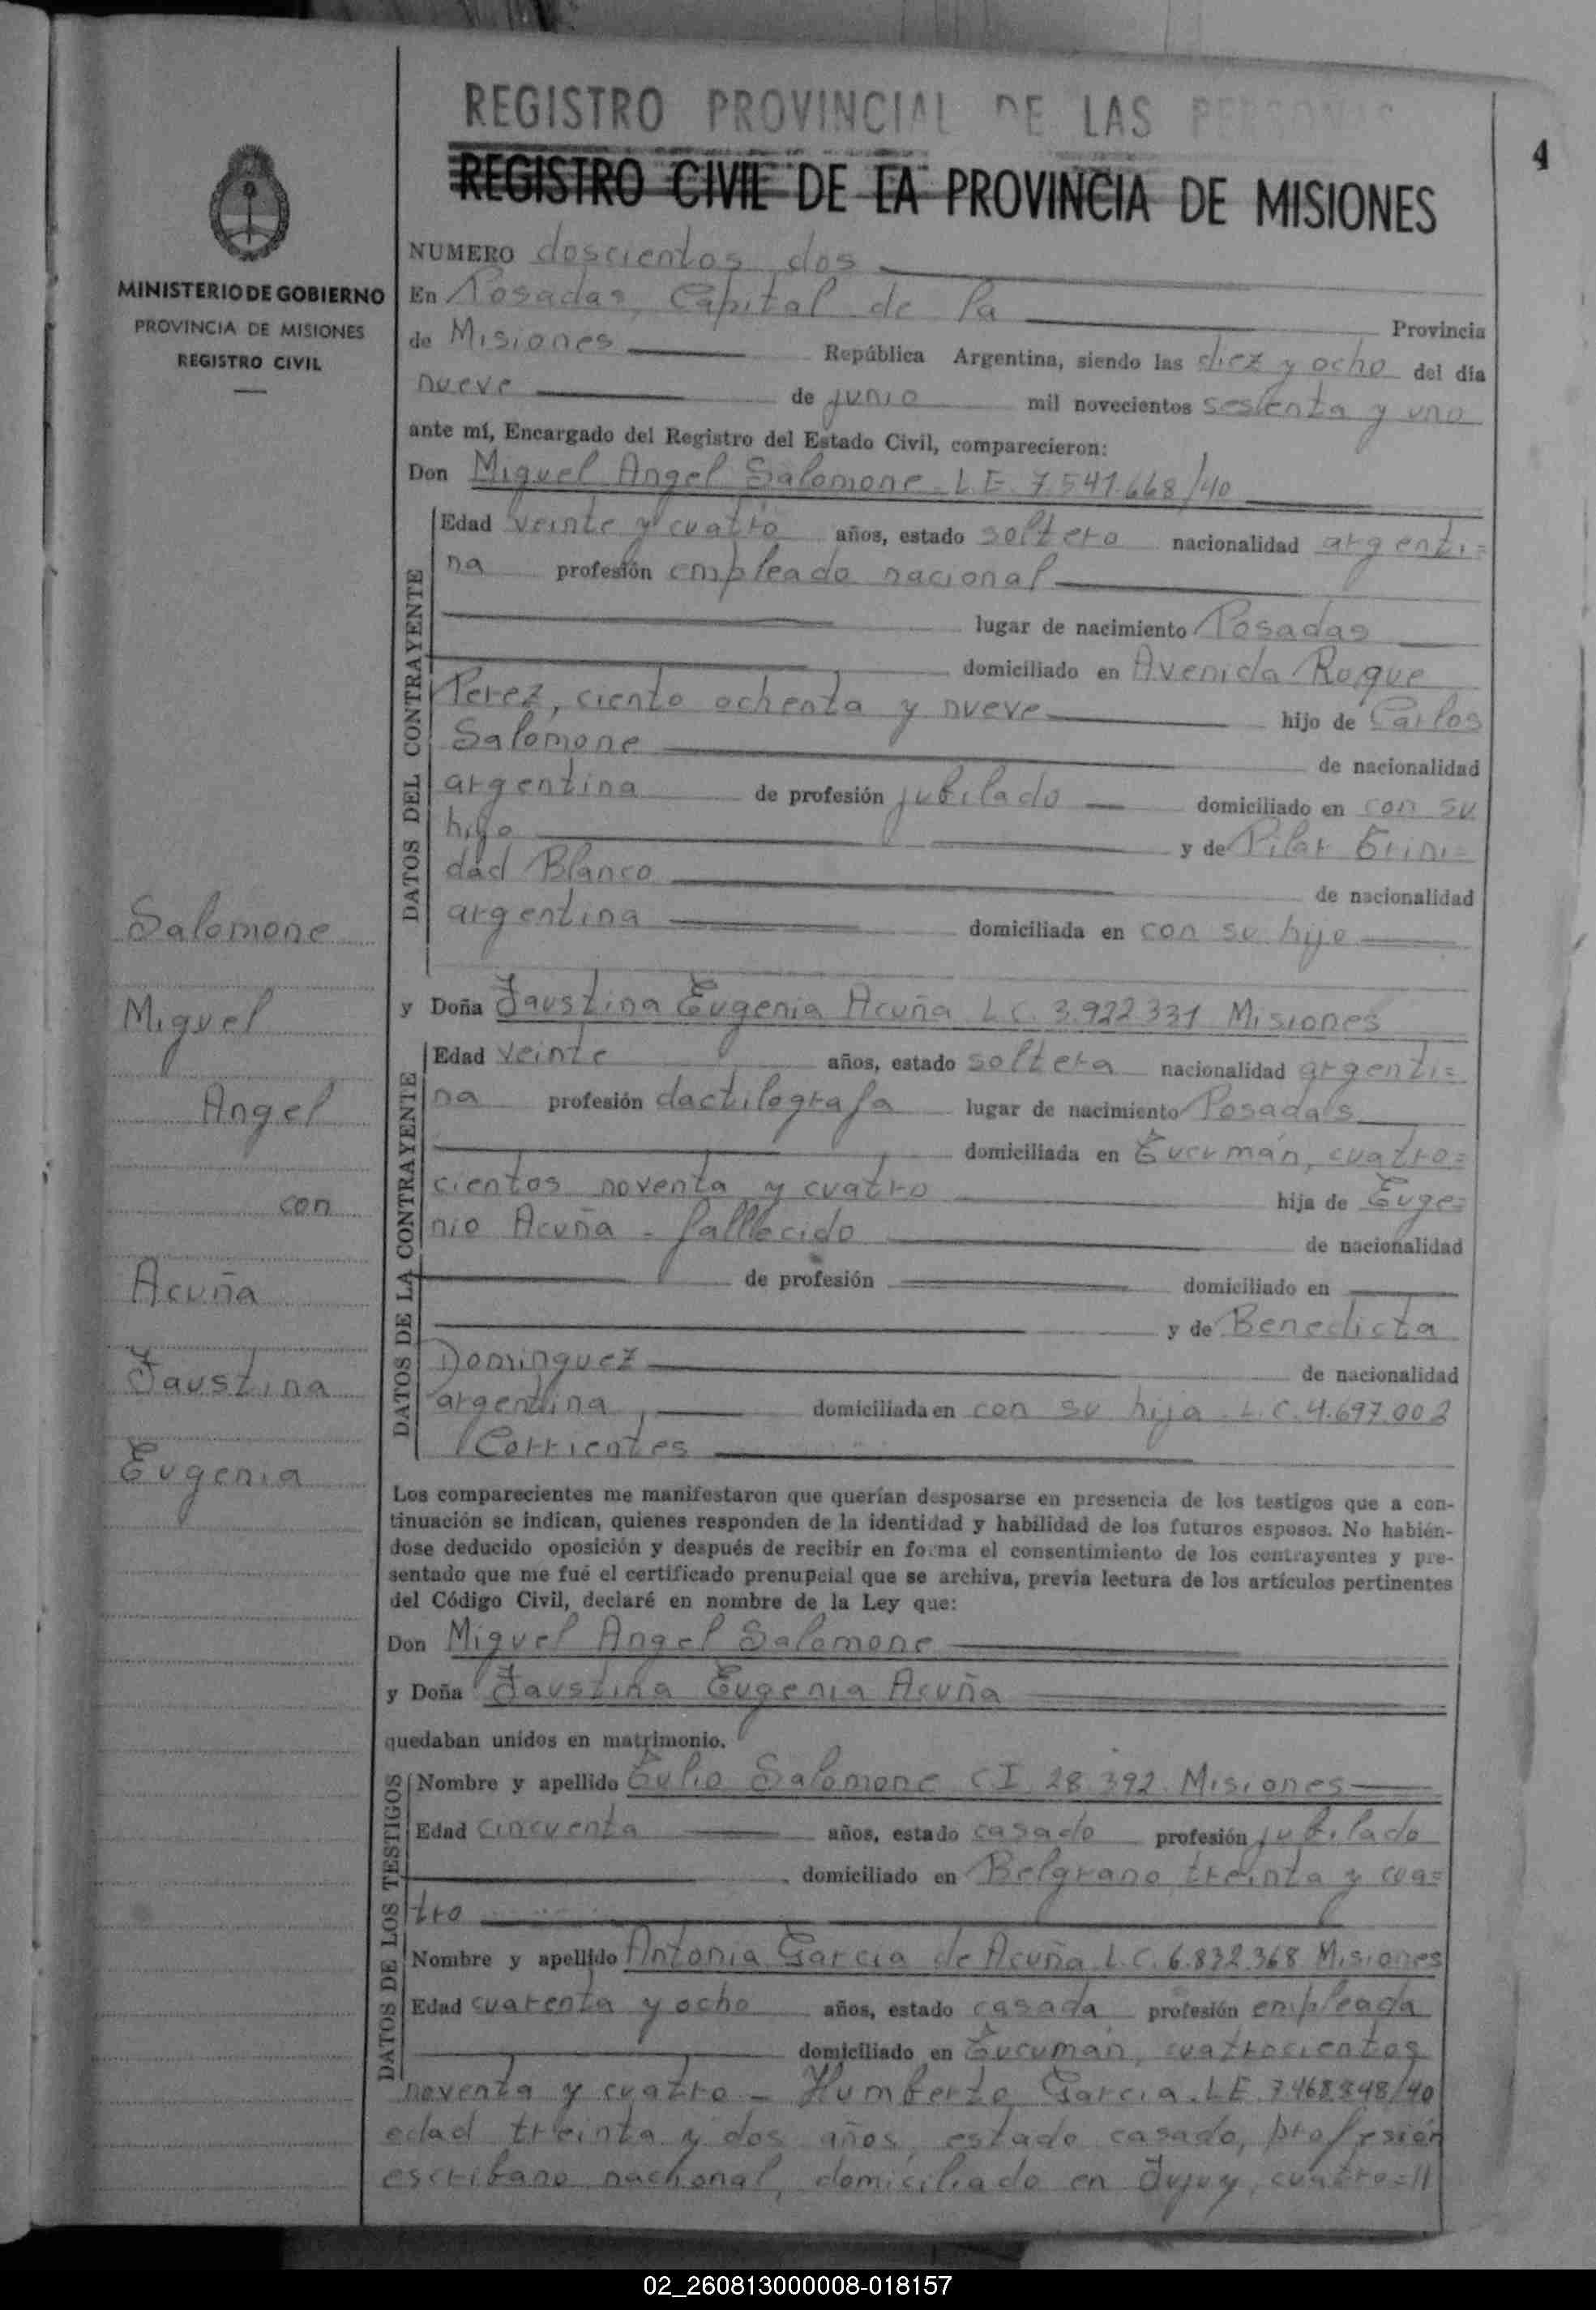 REGISTRO PROVINCIAL DE LAS PERSONAS
REGISTRO CIVIL DE LA PROVINCIA DE MISIONES
4
MINISTERIO DE GOBIERNO
PROVINCIA DE MISIONES
REGISTRO CIVIL
NUMERO doscientos dos
En Posadas, Capital de la Provincia
de Misiones República Argentina, siendo las diez y ocho del día
nueve de junio mil novecientos sesenta y uno
ante mí, Encargado del Registro del Estado Civil, comparecieron:
Don Miguel Angel Salomone. L.E. 7.541.668/40
Edad veinte y cuatro años, estado soltero nacionalidad argenti=
na profesión empleado nacional
lugar de nacimiento Posadas
domiciliado en Avenida Roque
Perez, ciento ochenta y nueve hijo de Carlos
Salomone de nacionalidad
argentina de profesión jubilado domiciliado en con su
hijo y de Pilar Trini=
dad Blanco de nacionalidad
argentina domiciliada en con su hijo
DATOS DEL CONTRAYENTE
Salomone
Miguel
Angel
con
Acuña
Faustina
Eugenia
y Doña Faustina Eugenia Acuña L.C. 3.922.331 Misiones
Edad veinte años, estado soltera nacionalidad argenti=
na profesión dactilografa lugar de nacimiento Posadas
domiciliada en Tucumán, cuatro=
cientos noventa y cuatro hija de Euge=
nio Acuña - falllecido de nacionalidad
de profesión domiciliado en
y de Benedicta
Dominguez de nacionalidad
argentina, domiciliada en con su hija. L.C. 4.697.002
Corrientes
DATOS DE LA CONTRAYENTE
Los comparecientes me manifestaron que querían desposarse en presencia de los testigos que a con-
tinuación se indican, quienes responden de la identidad y habilidad de los futuros esposos. No habién-
dose deducido oposición y después de recibir en forma el consentimiento de los contrayentes y pre-
sentado que me fué el certificado prenupcial que se archiva, previa lectura de los artículos pertinentes
del Código Civil, declaré en nombre de la Ley que:
Don Miguel Angel Salomone
y Doña Faustina Eugenia Acuña
quedaban unidos en matrimonio.
Nombre y apellido Tulio Salomone C.I. 28.392. Misiones
Edad cincuenta años, estado casado profesión jubilado
domiciliado en Belgrano treinta y cua=
tro
Nombre y apellido Antonia Garcia de Acuña L.C. 6.832.368 Misiones
Edad cuarenta y ocho años, estado casada profesión empleada
domiciliado en Tucumán, cuatrocientos
noventa y cuatro - Humberto Garcia. L.E. 7.468.848/40
edad treinta y dos años, estado casado, profesión
escribano nacional, domiciliado en Jujuy, cuatro=//
DATOS DE LOS TESTIGOS
02_260813000008-018157